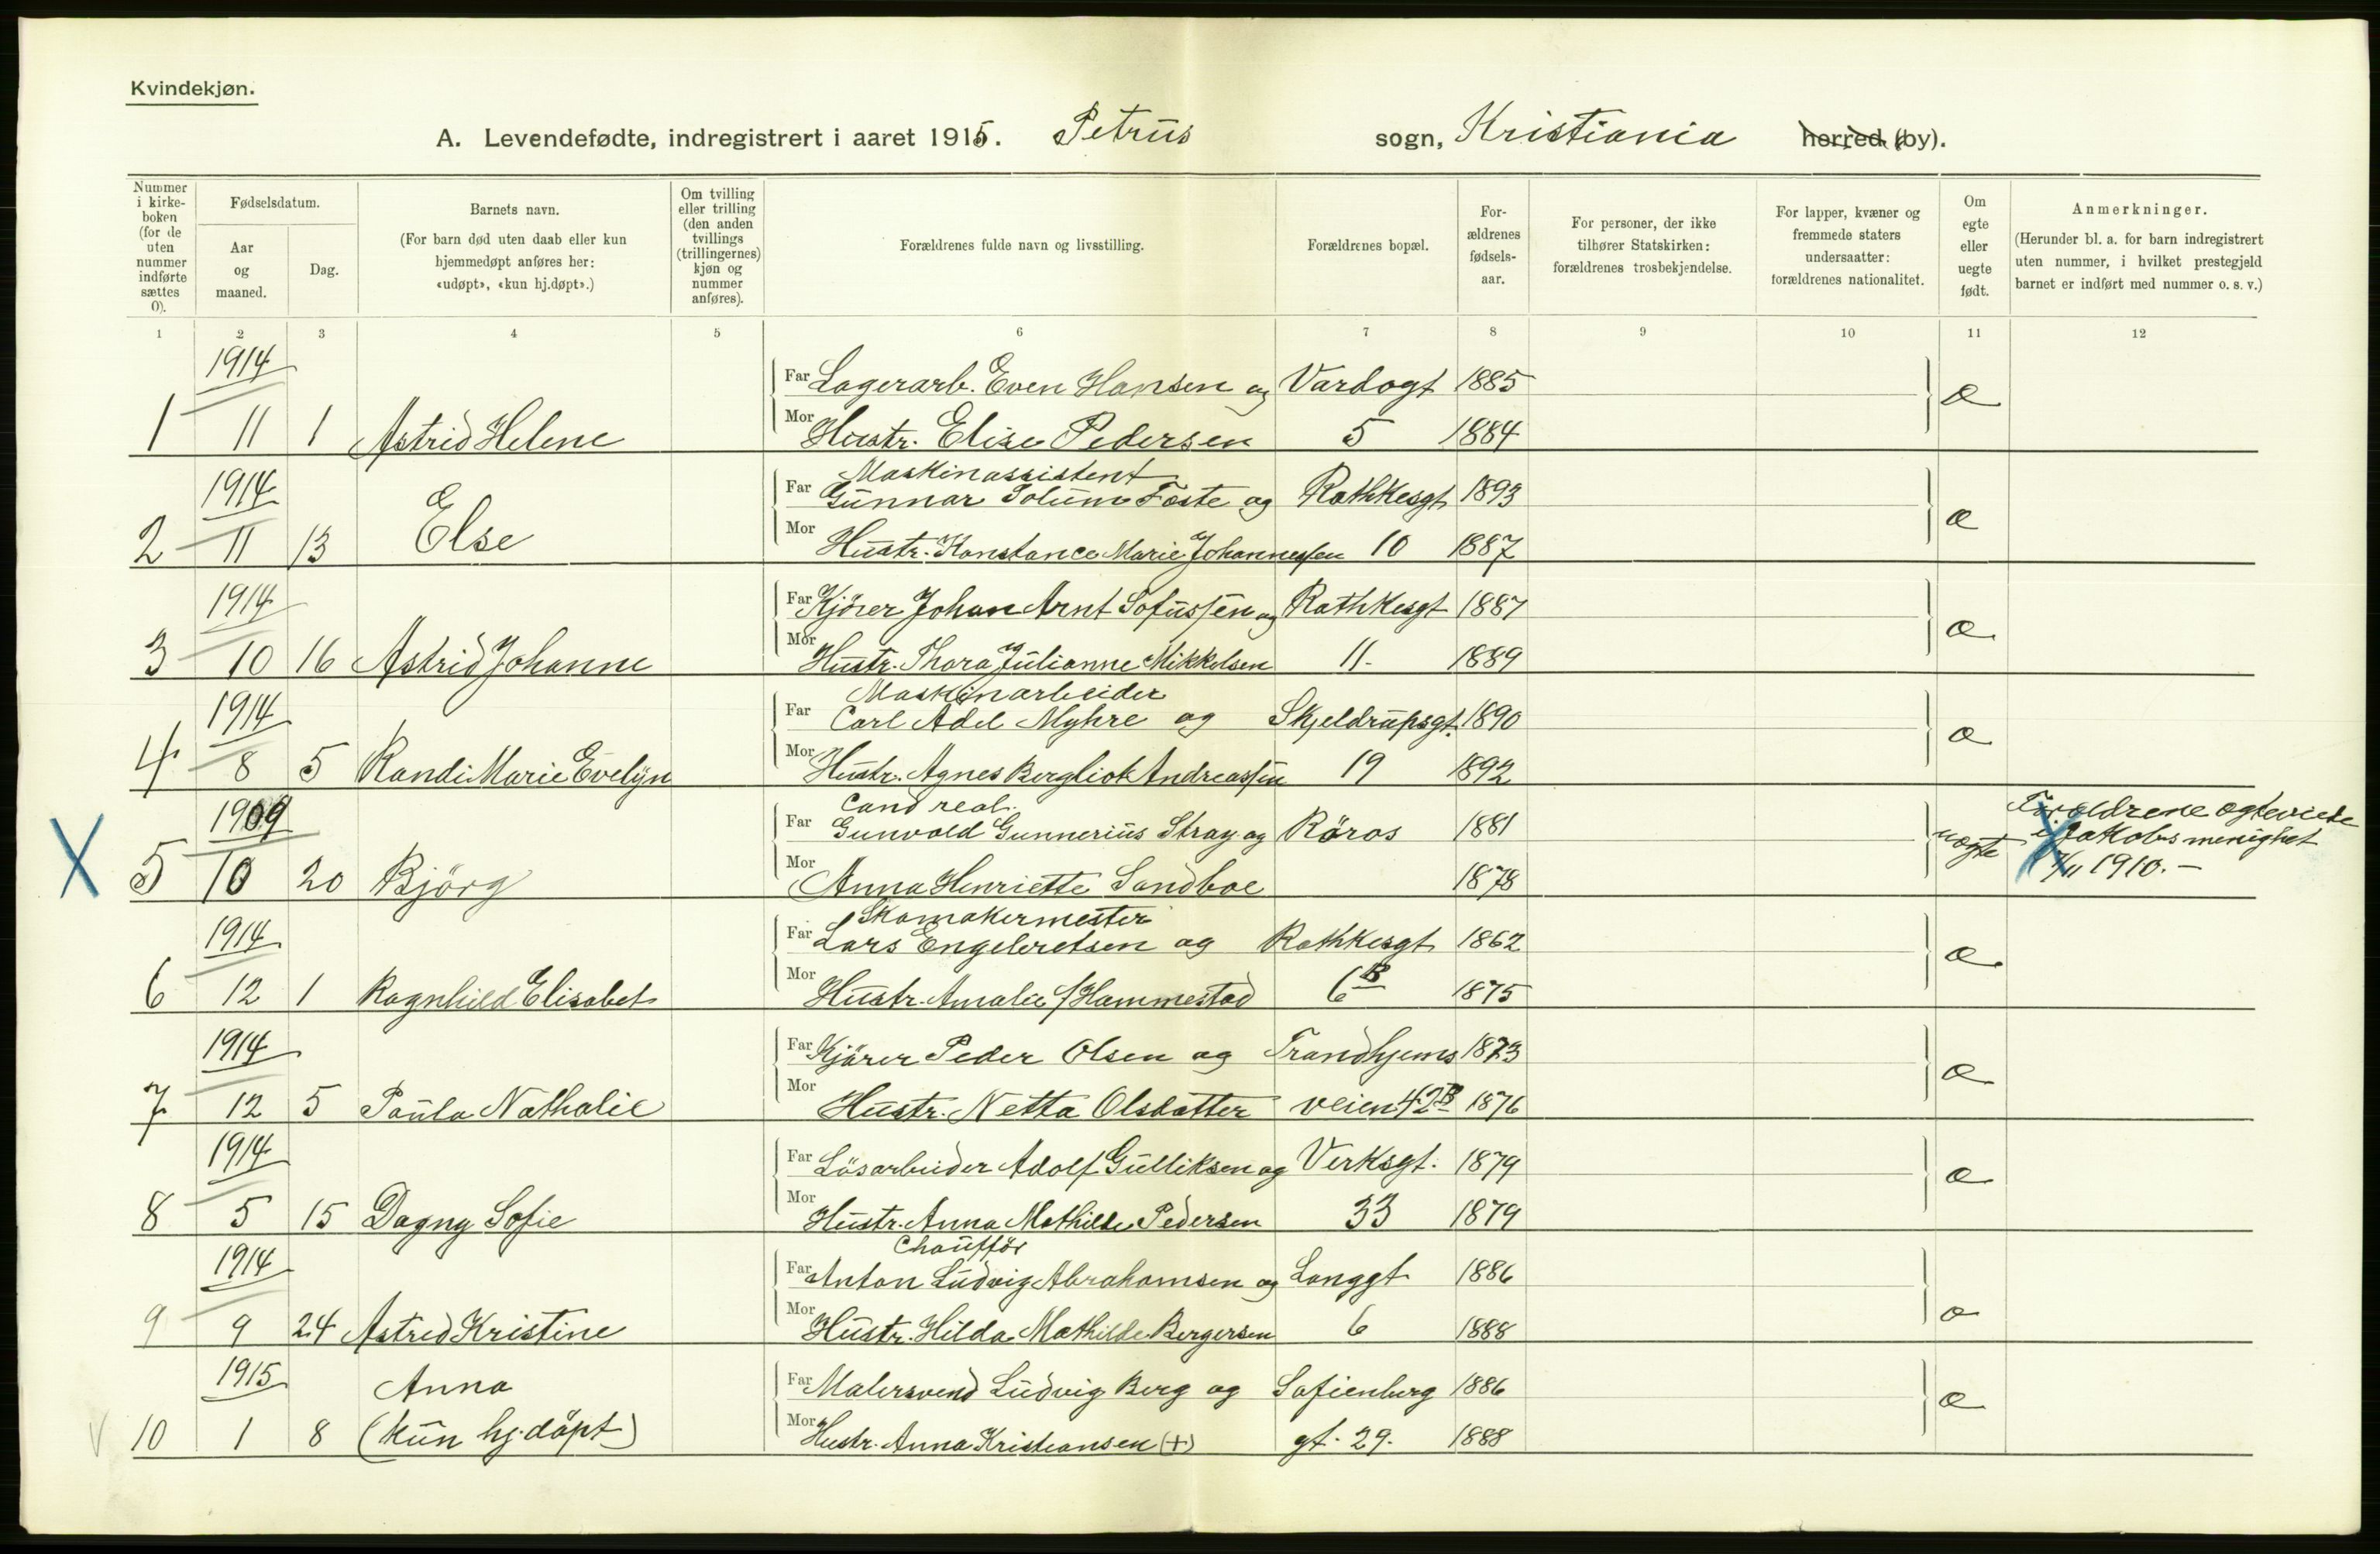 Kvindekjøn.
A. Levendefødte, indregistrert i aaret 1915. Petrus sogn, Kristiania herred (by).
Nummer i kirkeboken (for de uten nummer indførte sættes 0).
Fødselsdatum.
Aar og maaned.
Dag.
Barnets navn.
(For barn død uten daab eller kun hjemmedøpt anføres her: «udøpt», «kun hj.døpt».)
Om tvilling eller trilling (den anden tvillings (trillingernes) kjøn og nummer anføres).
Forældrenes fulde navn og livsstilling.
Forældrenes bopæl.
Forældrenes fødselsaar.
For personer, der ikke tilhører Statskirken: forældrenes trosbekjendelse.
For lapper, kvæner og fremmede staters undersaatter: forældrenes nationalitet.
Om egte eller uegte født.
Anmerkninger.
(Herunder bl. a. for barn indregistrert uten nummer, i hvilket prestegjeld barnet er indført med nummer o. s. v.)
1 2 3 4 5 6 7 8 9 10 11 12
1914
Far Lagerarb. Even Hansen og Vardøgt 1885 æ
1 11 1 Astrid Helene Mor Hustr. Elise Pedersen 5 1884
1914 Maskinassistent
Far Gunnar Solum Foste og Rathkesgt 1893 æ
2 11 13 Else Mor Hustr. Konstance Marie Johannessen 10 1887
1914 Far Kjörer Johan Arnt Sofussen og Rathkesgt 1887 æ
3 10 16 Astrid Johanne Mor Hustr. Thora Julianne Mikkelsen 11. 1889
1914 Maskinarbeider
Far Carl Adel Myhre og Skjeldrupsgt. 1890 æ
4 8 5 Randi Marie Evelyn Mor Hustr. Agnes Bergliot Andreassen 19 1892
1909 Cand real.
Far Gunvald Gunnerius Stray og Röros 1881 uægte Forældrene ægteviede
i Jakobs menighet
X 5 10 20 Bjørg Mor Anna Henriette Sandboe 1878 X 7/11 1910.-
1914 Skomakermester
Far Lars Engebretsen og Rathkesgt 1862 æ
6 12 1 Ragnhild Elisabet Mor Hustr. Amalie f/Hammestad 6B 1875
1914 Far Kjörer Peder Olsen og Trondhjems 1873 æ
7 12 5 Paula Nathalie Mor Hustr. Netta Olsdatter veien 42B 1876
1914 Far Lösarbeider Adolf Gulliksen og Verksgt. 1879 æ
8 5 15 Dagny Sofie Mor Hustr. Anna Mathilde Pedersen 33 1879
1914 Chaufför
Far Anton Ludvig Abrahamsen og Langgt 1886 æ
9 9 24 Astrid Kristine Mor Hustr. Hilda Mathilde Bergersen 6 1888
1915 Anna Far Malersvend Ludvig Berg og Sofienberg 1886 æ
V 10 1 8 (kun hj.döpt) Mor Hustr. Anna Kristiansen (+) gt. 29. 1888